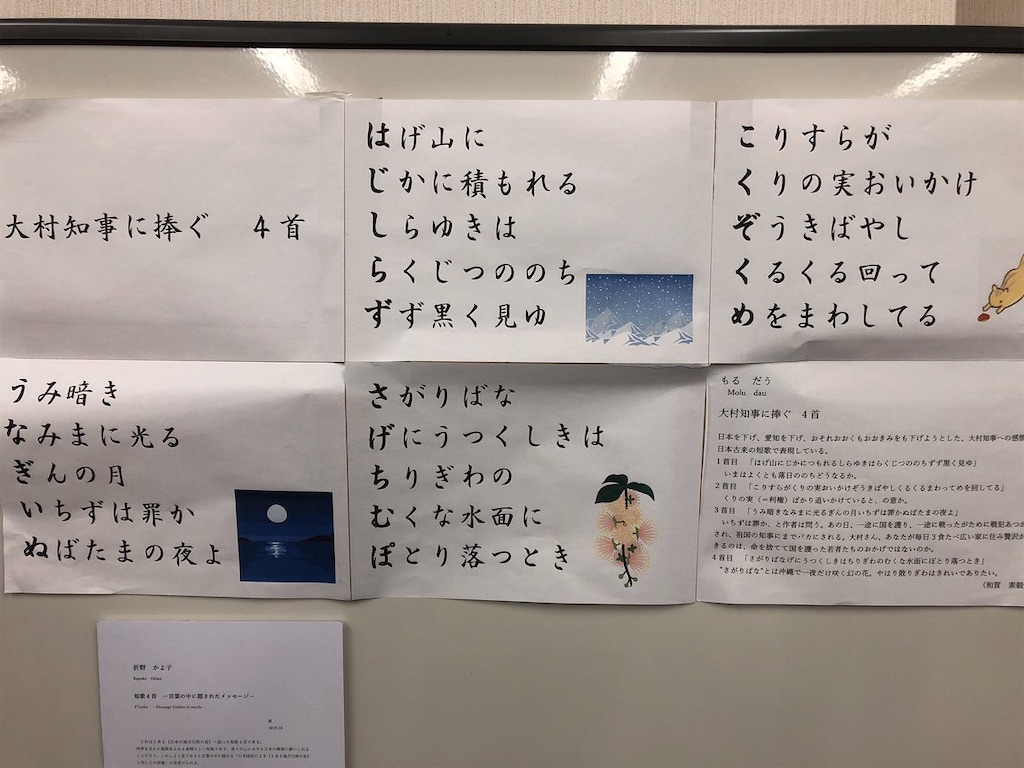 大村知事に捧ぐ　４首
はげ山に
じかに積もれる
しらゆきは
らくじつののち
ずず黒く見ゆ
こりすらが
くりの実おいかけ
ぞうきばやし
くるくる回って
めをまわしてる
うみ暗き
なみまに光る
ぎんの月
いちずは罪か
ぬばたまの夜よ
さがりばな
げにうつくしきは
ちりぎわの
むくな水面に
ぽとり落つとき
もる　だう
Molu　dau
大村知事に捧ぐ　４首
日本を下げ、愛知を下げ、おそれおおくもおおきみをも下げようとした、大村知事への感想
日本古来の短歌で表現している。
１首目　「はげ山にじかにつもれるしらゆきはらくじつののちずず黒く見ゆ」
いまはよくとも落日ののちどうなるか。
２首目　「こりすらがくりの実おいかけぞうきばやしくるくるまわってめを回してる」
くりの実（＝利権）ばかり追いかけていると、の意か。
３首目　「うみ暗きなみまに光るぎんの月いちずは罪かぬばたまの夜よ」
いちずは罪か、と作者は問う。あの日、一途に国を護り、一途に戦ったがために戦犯あつか
され、祖国の知事にまでバカにされる。大村さん、あなたが毎日３食たべ広い家に住み贅沢が
きるのは、命を捨てて国を護った若者たちのおかげではないのか。
４首目　「さがりばなげにうつくしきはちりぎわのむくな水面にぽとり落つとき」
"さがりばな"とは沖縄で一夜だけ咲く幻の花。やはり散りぎわはきれいでありたい。
（和賀　素毅
折野　かよ子
Kayoko　Orino
短歌４首　－言葉の中に隠されたメッセージ－